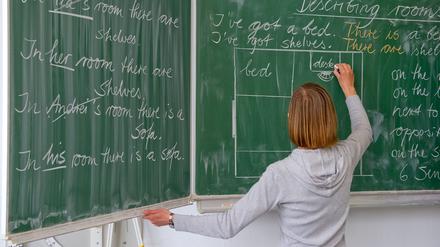 room there are
shelves
In her room there are
Shelves.
In André's room there is a
Sofa.
In his room there is a sofa.
Describing room
I've got a bed. There is a be
I've got shelves. There are she
bed
desk
on the
on the
next to
opposi
on the s
6 Sin